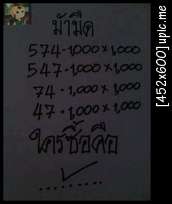 ม้ามืด
574.1,000×1,000
547.1,000×1,000
74.1,000×1,000
47.1,000×1,000
ใครซื้อคือ
[452x600] upic.me